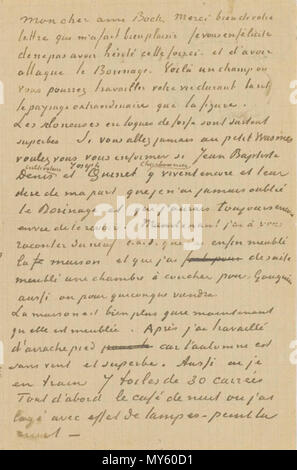 mon cher ami Boch. Merci bien de votre
lettre qui m'a fait bien plaisir je vous en félicite
de ne pas avoir hésité cette fois ci et d'avoir
attaqué le Borinage. Voilà un champ ou
vous pourrez travailler votre vie durant tant
le paysage extraordinaire que la figure.
Les sloneuses en loques de fosse sont surtout
superbes. Si vous allez jamais au petit Wasmes
voulez vous vous informer si Jean Baptiste
cultivateur Joseph charbonnier
Denis et Quenet y vivent encore et leur
dire de ma part que je n'ai jamais oublié
le Borinage et que j'aurais toujours encore
envie de le revoir. Maintenant j'ai à vous
raconter du neuf c'est que enfin meublé
la maison et que j'ai de suite
meublé une chambre à coucher pour Gauguin
aussi ou pour quiconque viendra.
La maison est bien plus gaie maintenant
qu'elle est meublée. Après j'ai travaillé
d'arrache pied car l'automne est
sans vent et superbe. Aussi ai je
en train 7 toiles de 30 carrées
Tout d'abord le café de nuit ou j'ai
logé avec effet de lampes - peint la
nuit —
alamy
Image ID: MY60D1
www.alamy.com